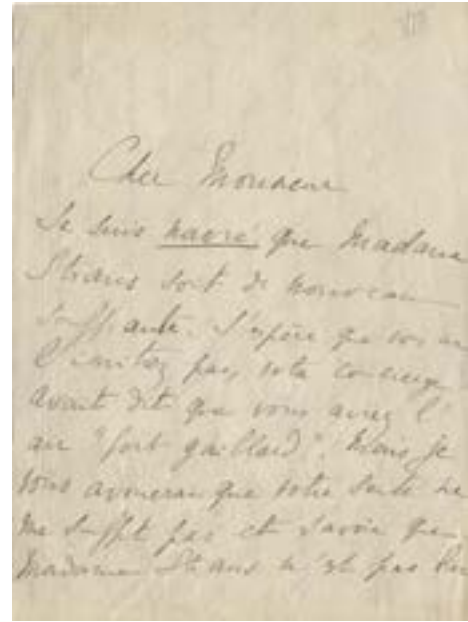 Cher Monsieur
Je suis navré que Madame
Straus soit de nouveau
souffrante. J'espère que vous ne
l'imitez pas, votre concierge
ayant dit que vous aviez l'
air "fort gaillard". Mais je
vous avouerai que votre santé ne
me suffit pas et savoir que
Madame Straus n'est pas bien